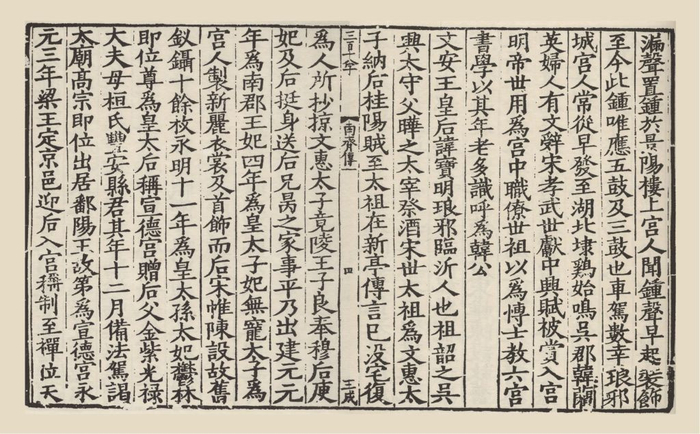 漏聲置鍾於景陽樓上宮人聞鍾聲早起裝飾
至今此鍾唯應五鼓及三鼓也車駕數幸琅邪
城宮人常從早發至湖北埭鷄始鳴吳郡韓藺
英婦人有文辭宋孝武世獻中興賦被賞入宮
明帝世用爲宮中職僚世祖以爲博士教六宮
書學以其年老多識呼爲韓公
文安王皇后諱寶明琅邪臨沂人也祖韶之吳
興太守父曄之太宰祭酒宋世太祖爲文惠太
子納后桂陽賊至太祖在新亭傳言已没宅復
南齊傳一
四
爲人所抄掠文惠太子竟陵王子良奉穆后庾
妃及后挺身送后兄昺之家事平乃出建元元
年爲南郡王妃四年爲皇太子妃無寵太子爲
宮人製新麗衣裳及首飾而后床帷陳設故舊
釵鑷十餘枚永明十一年爲皇太孫太妃鬱林
即位尊爲皇太后稱宣德宮贈后父金紫光祿
大夫母桓氏豐安縣君其年十二月備法駕謁
太廟高宗即位出居鄱陽王故第爲宣德宮永
元三年梁王定京邑迎后入宮稱制至禪位天